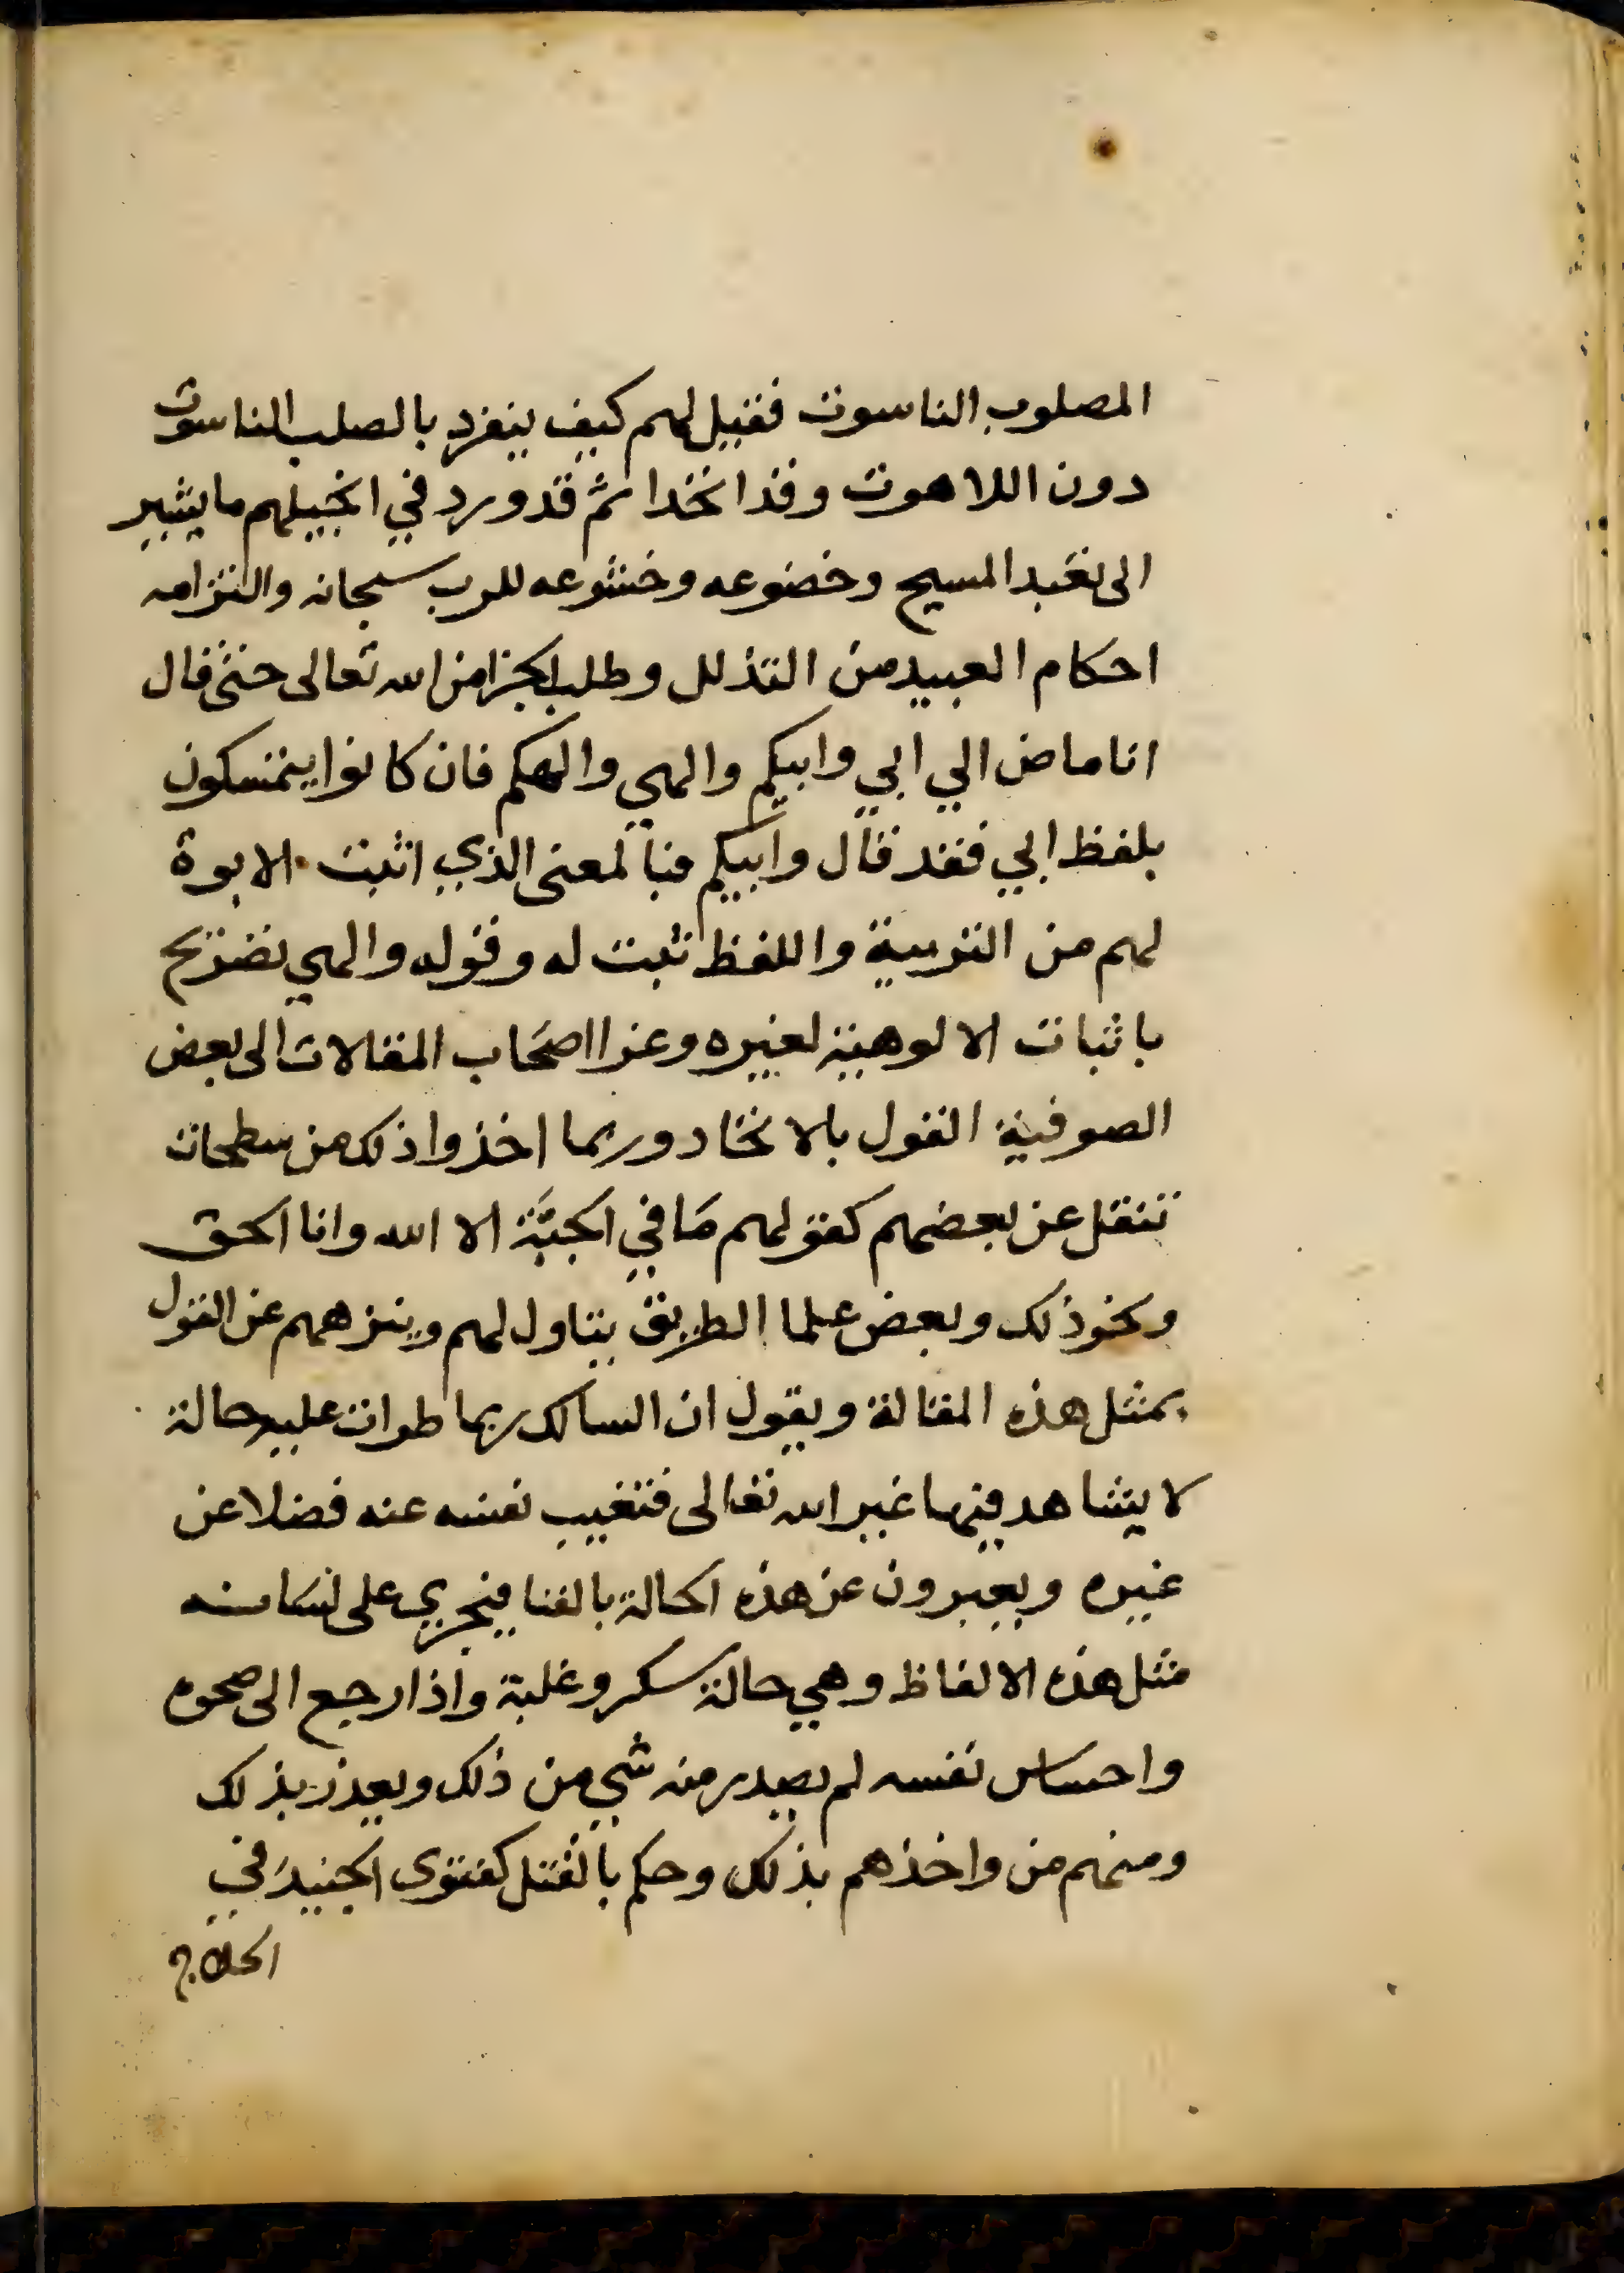 المصلوب الناسوت فقيل لهم كيف ينفرد بالصلب الناسوت
دون اللاهوت وقد اتحدا ثم قد ورد في انجيلهم ما يشير
الى تعبد المسيح وخضوعه وخشوعه للرب سبحانه والتزامه
احكام العبيد من التذلل وطلب الجزا من الله تعالى حتى قال
انا ماض الي ابي وابيكم والهي والهكم فان كانوا يتمسكون
بلفظ ابي فقد قال وابيكم فبالمعنى الذي اثبت الابوة
لهم من التربية واللفظ تثبت له وقوله والهي تصريح
باثبات الالوهية لغيره وعزا اصحاب المقالات الى بعض
الصوفية القول بالاتحاد وربما اخذوا ذلك من سطحات
تنقل عن بعضهم كقولهم ما في الجبة الا الله وانا الحق
ونحو ذلك وبعض علما الطريق يتاول لهم وينزههم عن القول
بمثل هذه المقالة ويقول ان السالك ربما طرات عليه حالة
لا يشاهد فيها غير الله تعالى فتغيب نفسه عنه فضلا عن
غيره ويعبرون عن هذه الحالة بالفنا فيجري على لسانه
مثل هذه الالفاظ وهي حالة سكر وغلبة واذا رجع الى صحوه
واحساس نفسه لم يصدر منه شي من ذلك ويعذر بذلك
ومنهم من واخذهم بذلك وحكم بالقتل كفتوى الجنيد في
الحلاج